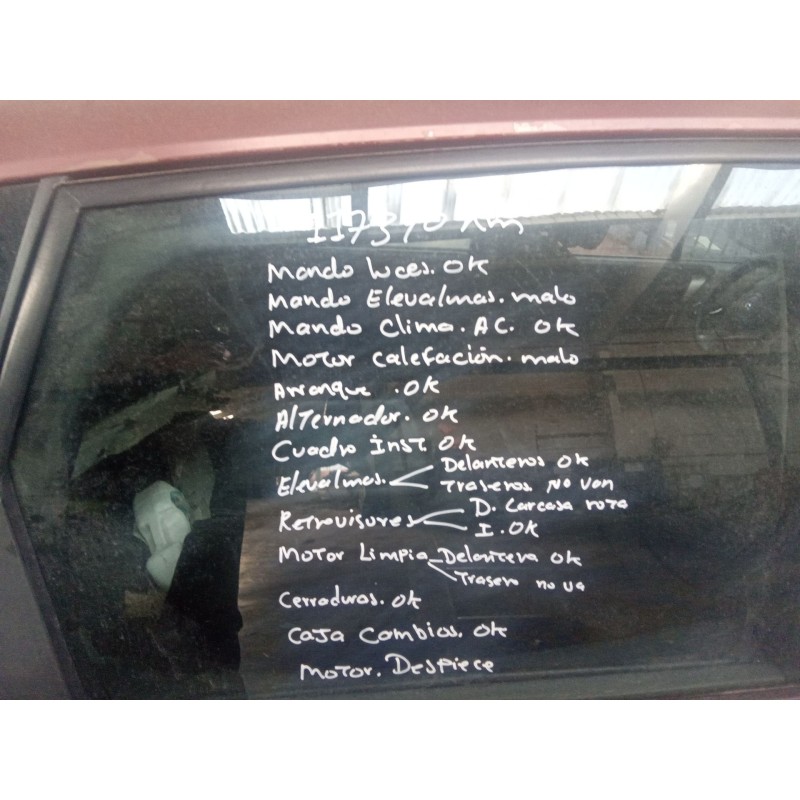 Mando luces. OK
Mando Elevalunas. malo
Mando Clima. AC. OK
Motor calefación. malo
Arranque. OK
Alternador. OK
Cuadro inst OK
Elevalunas. Delanteros OK
Traseros no van
Retrovisores D. Carcasa rota
I. OK
Motor Limpia Delantera OK
Trasero no va
Cerraduras. OK
Caja Cambios. OK
Motor. Despiece